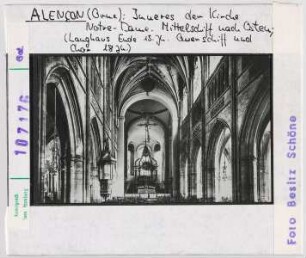 ALENÇON (Orne): Inneres der Kirche
Notre-Dame. Mittelschiff nach Osten,
(Langhaus Ende 15. Jh. Querschiff und
Chor 18 Jh.)
Gat.
107176
Foto Besitz Schöne